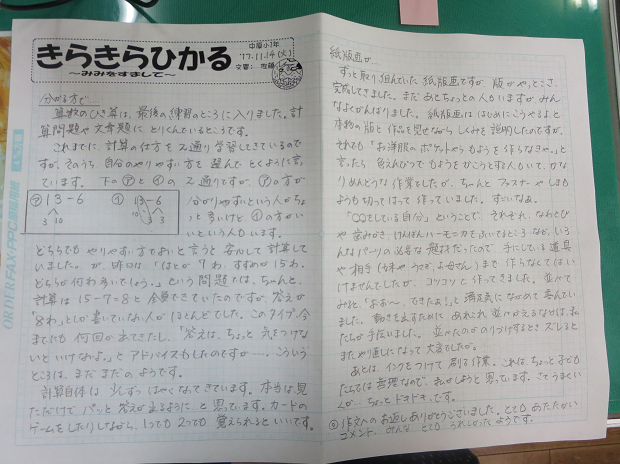 きらきらひかる
～みみをすまして～
中原小1年
'17.11.14(火)
文責:
分かる方で…
算数のひき算は、最後の練習のところに入りました。計
算問題や文章題にとりくんでいるところです。
これまでに、計算の仕方を2通り学習してきているので
すが、そのうち、自分のやりやすい方を選んでとくように言っ
ています。下の㋐と㋑の2通りですが、㋐の方が
㋐ 13-6
3 10
㋑ 13-6
10 3 3
分かりやすいという人がちょ
っと多いけど ㋑の方がい
いという人もいます。
どちらでもやりやすい方でよいと言うと安心して計算して
いました。が、昨日は「はとが7わ、すずめが15わ。
どちらが何わ多いでしょう。」という問題では、ちゃんと、
計算は 15-7=8と全員できていたのですが、答えが
「8わ」としか書いていない人がほとんどでした。このタイプ、今
までにも何回か出てきたし、「答えは、ちょっと気をつけな
いといけなよ。」とアドバイスもしたのですが……。こういう
ところは、まだまだのようです。
計算自体は少しずつはやくなってきています。本当は見
ただけでパッと答えが出るように と思っています。カードの
ゲームをしたりしながら、1つでも2つでも覚えられるといいです。
紙版画が…
ずっと取り組んでいた紙版画ですが、版がやっとこさ、
完成してきました。まだあとちょっとの人もいますが、みん
なよくがんばりました。紙版画は、はじめにこうやるよと
本物の版と作品を見せながら しくみを説明したのですが、
それでも「お洋服のポケットやもようを作らなきゃ。」と
言ったら 色えんぴつでもようをかこうとする人もいて、かな
りめんどうな作業でしたが、ちゃんとファスナーやしまも
ようも切ってはって作っていました。すごいなぁ。
「○○をしている自分」ということで、それぞれ、なわとび
や歯みがき、けんばんハーモニカをふいてるところなど、いろ
んなパーツの必要な題材だったので、手にしている道具
や相手まで作らなくてはい
けませんでしたが、コツコツと作ってきました。並べて
みると、「おお～、できたぁ！」と満足気にながめて喜んでい
ました。動きを出すために
たちが手伝いました。並べたのがのりづけするとき ズレると
またやり直しになって大変でしたが。
あとは、インクをつけて刷る作業。これは、ちょっと子ども
たちでは無理なので、私がしようと思っています。さてうまくい
くか…ちょっとドキドキです。
◎作文へのお返しありがとうございました。とてもあたたかい
コメント、みんなとてもうれしかったようです。